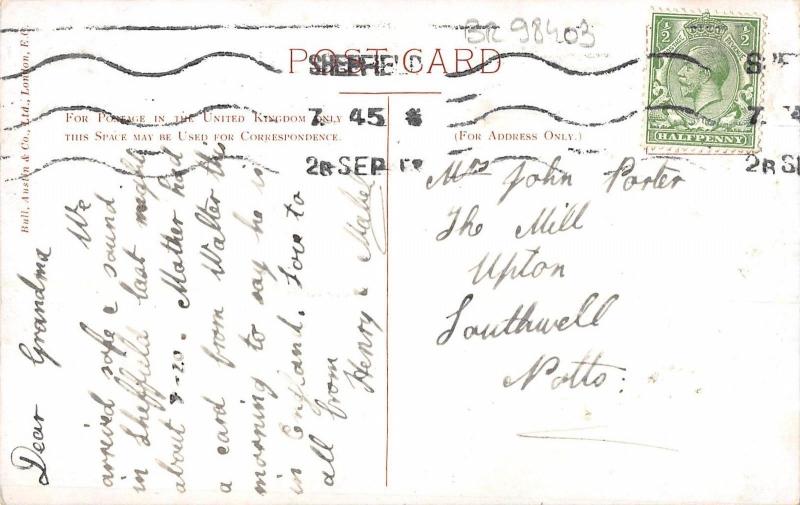 BR 98403
POST CARD
SHEFFIELD
7. 45
28 SEP
½ ½
HALFPENNY
FOR POSTAGE IN THE UNITED KINGDOM ONLY
THIS SPACE MAY BE USED FOR CORRESPONDENCE.
(FOR ADDRESS ONLY.)
Bull, Austin & Co., Ltd., London, E.C.
Dear Grandma
We
arrived safe & sound
in Sheffield last night
about 8-20. Mother had
a card from Walter this
morning to say he is
in England. Love to
all from
Henry & Mabel
Mrs John Porter
The Mill
Upton
Southwell
Notts.